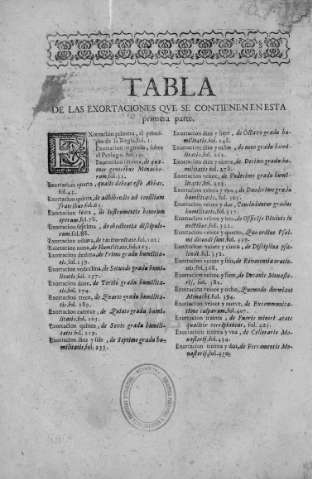 TABLA
DE LAS EXORTACIONES QVE SE CONTIENEN EN ESTA
primera parte.
Exortacion primera, el
de la Regla, fol. 1.
Exortacion segunda, sobre
el Prologo, fol.
Exortacion tercera, de
generibus Monachorum, fol.
Exortacion quarta, qualis debeat esse Abbas,
fol.
Exortacion quinta, de adhibendis ad consilium
fratribus fol.
Exortacion sexta, de Instrumentis bonorum
operum fol.
Exortacion septima, de obedientia discipulorum
fol. 88.
Exortacion octaua, de taciturnitate fol.
Exortacion nona, de Humilitate, fol.
Exortacion dezima de Primo gradu humilitatis
fol. 139.
Exortacion vndecima, de Secundo gradu humilitatis
fol. 157.
Exortacion doze, de Tertio gradu humilitatis
fol. 174.
Exortacion trece, de Quarto gradu humilitatis,
fol. 189.
Exortacion catorce, de Quinto gradu humilitatis,
fol. 205.
Exortacion quince, de Sexto gradu humilitatis
fol. 219.
Exortacion diez y seis, de Septimo gradu humilitatis,
fol. 233.
Exortacion diez y siete, de Octauo gradu humilitatis
fol. 248.
Exortacion diez y ocho, de Nono gradu humilitatis
fol. 262.
Exortacion diez y nueue, de Decimo gradu humilitatis
fol. 278.
Exortacion veinte, de Vndecimo gradu humilitatis
fol. 293.
Exortacion veinte y vna, de Duodecimo gradu
humilitatis fol. 305.
Exortacion veinte y dos,
humilitatis fol. 317.
Exortacion veinte y tres de Officijs Diuinis in
noctibus fol. 322.
Exortacion veinte y quatro, Quo ordine Psalmi
dicendi sint fol. 337.
Exortacion veinte y cinco, de Disciplina psallendi
fol. 352.
Exortacion veinte y seis, de Reuerentia orationis,
fol. 368.
Exortacion veinte y siete, de Decanis Monasterij,
fol. 382.
Exortacion veinte y ocho, Quomodo dormiant
Monachi fol. 394.
Exortacion veinte y nueue, de Excommunicatione
culparum fol. 407.
Exortacion treinta, de Pueris minori ætate
qualiter corripiantur, fol. 421.
Exortacion treinta y vna, de Cellerario Monasterij
fol. 434.
Exortacion treinta y dos, de Ferramentis Monasterij,
fol. 450.